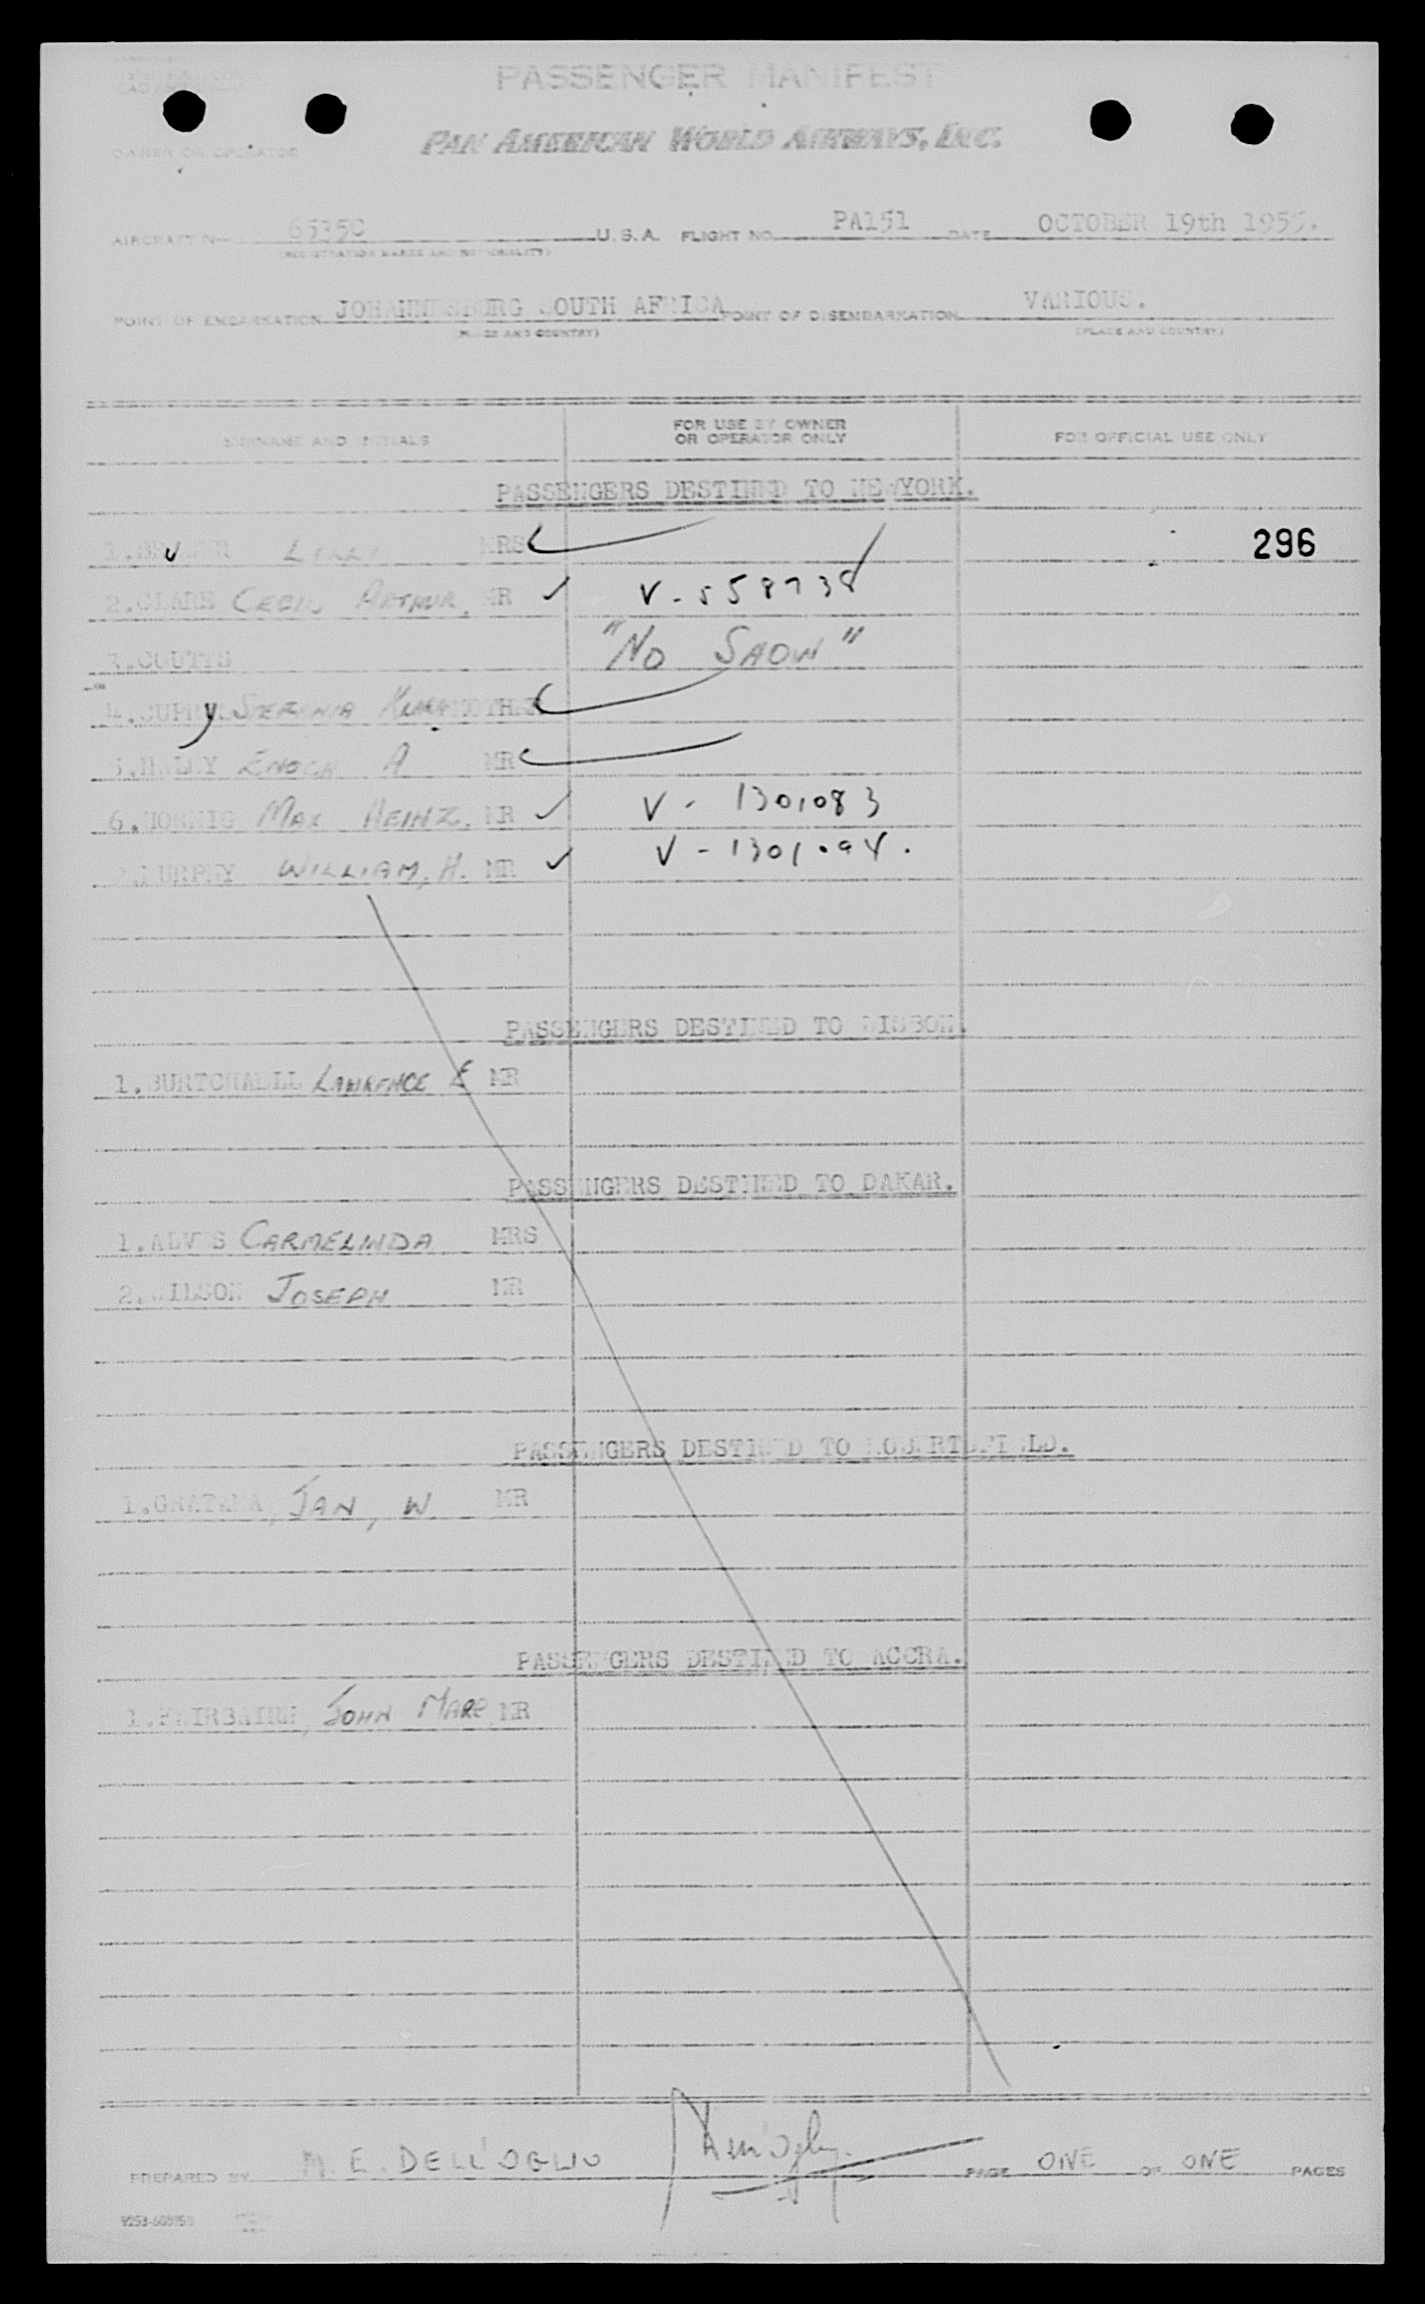 PASSENGER MANIFEST
OWNER OR OPERATOR
PAN AMERICAN WORLD AIRWAYS, INC.
AIRCRAFT N 6535C U.S.A. FLIGHT NO. PA151 DATE OCTOBER 19th 1955.
(REGISTRATION MARKS AND NATIONALITY)
POINT OF EMBARKATION JOHANNESBURG SOUTH AFRICA POINT OF DISEMBARKATION VARIOUS.
(PLACE AND COUNTRY) (PLACE AND COUNTRY)
SURNAME AND INITIALS FOR USE BY OWNER OR OPERATOR ONLY FOR OFFICIAL USE ONLY
PASSENGERS DESTINED TO NEWYORK.
1. MRS 296
2.CLARE CECIL ARTHUR, MR V-558738
3.COUTTS "NO SHOW"
4.
5. ENOCH A MR
6.HORNIG MAX HEINZ. MR V-1301083
7.MURPHY WILLIAM, H. MR V-1301094.
PASSENGERS DESTINED TO LISBON.
1.BURTCHAELL LAWRENCE E MR
PASSENGERS DESTINED TO DAKAR.
1.ALVES CARMELINDA MRS
2.WILSON JOSEPH MR
PASSENGERS DESTINED TO ROBERTSFIELD.
1.GRATAMA, JAN, W MR
PASSENGERS DESTINED TO ACCRA.
1.FAIRBAIRN, JOHN MARR MR
PREPARED BY M.E. DELL'OGLIO PAGE ONE OF ONE PAGES